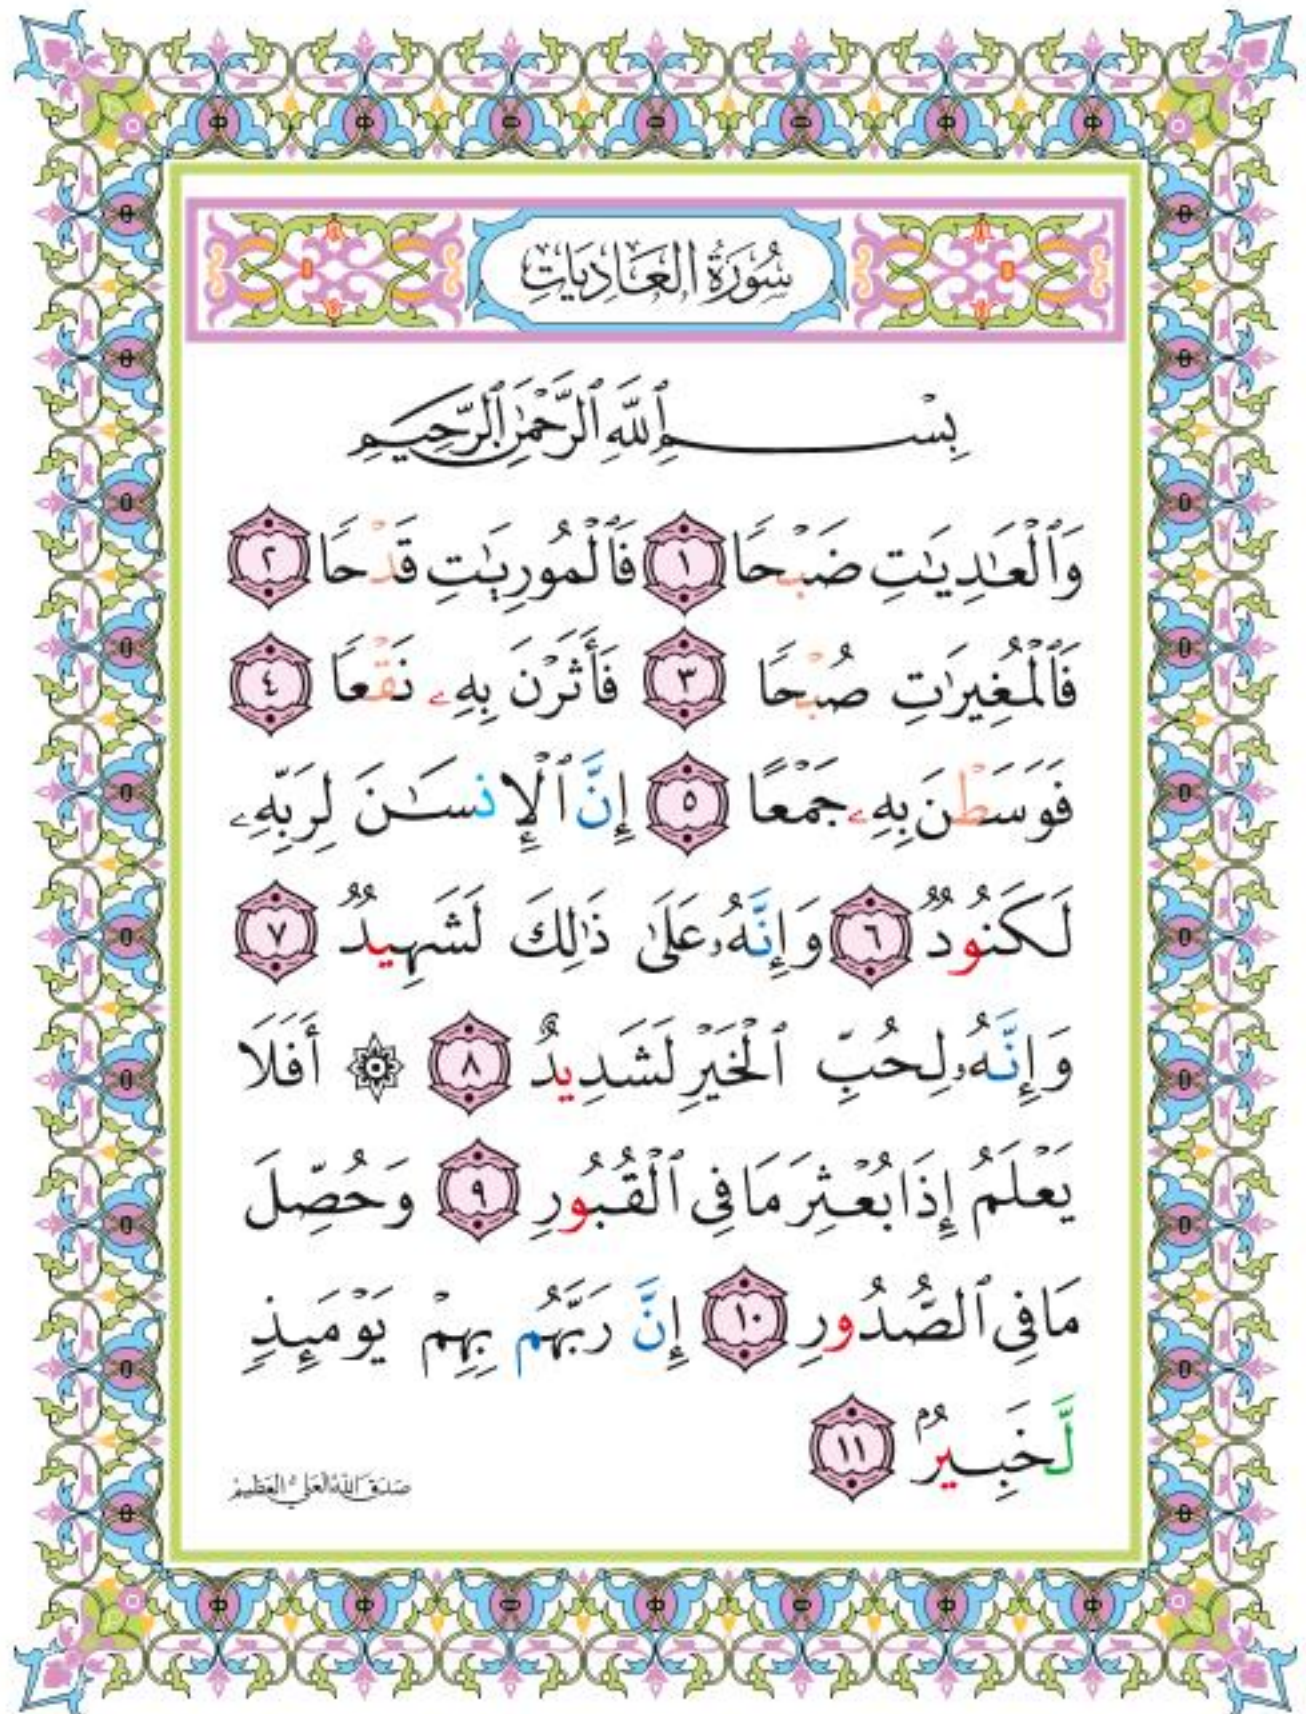 سُورَةُ الْعَادِيَاتِ
بِسْمِ ٱللَّهِ ٱلرَّحْمَٰنِ ٱلرَّحِيمِ
وَٱلْعَٰدِيَٰتِ ضَبْحًا ١ فَٱلْمُورِيَٰتِ قَدْحًا ٢
فَٱلْمُغِيرَٰتِ صُبْحًا ٣ فَأَثَرْنَ بِهِۦ نَقْعًا ٤
فَوَسَطْنَ بِهِۦ جَمْعًا ٥ إِنَّ ٱلْإِنسَٰنَ لِرَبِّهِۦ
لَكَنُودٌ ٦ وَإِنَّهُۥ عَلَىٰ ذَٰلِكَ لَشَهِيدٌ ٧
وَإِنَّهُۥ لِحُبِّ ٱلْخَيْرِ لَشَدِيدٌ ٨ ۞ أَفَلَا
يَعْلَمُ إِذَا بُعْثِرَ مَا فِى ٱلْقُبُورِ ٩ وَحُصِّلَ
مَا فِى ٱلصُّدُورِ ١٠ إِنَّ رَبَّهُم بِهِمْ يَوْمَئِذٍ
لَّخَبِيرٌۢ ١١
صَدَقَ اللَّهُ العَلِيُّ العَظِيمُ